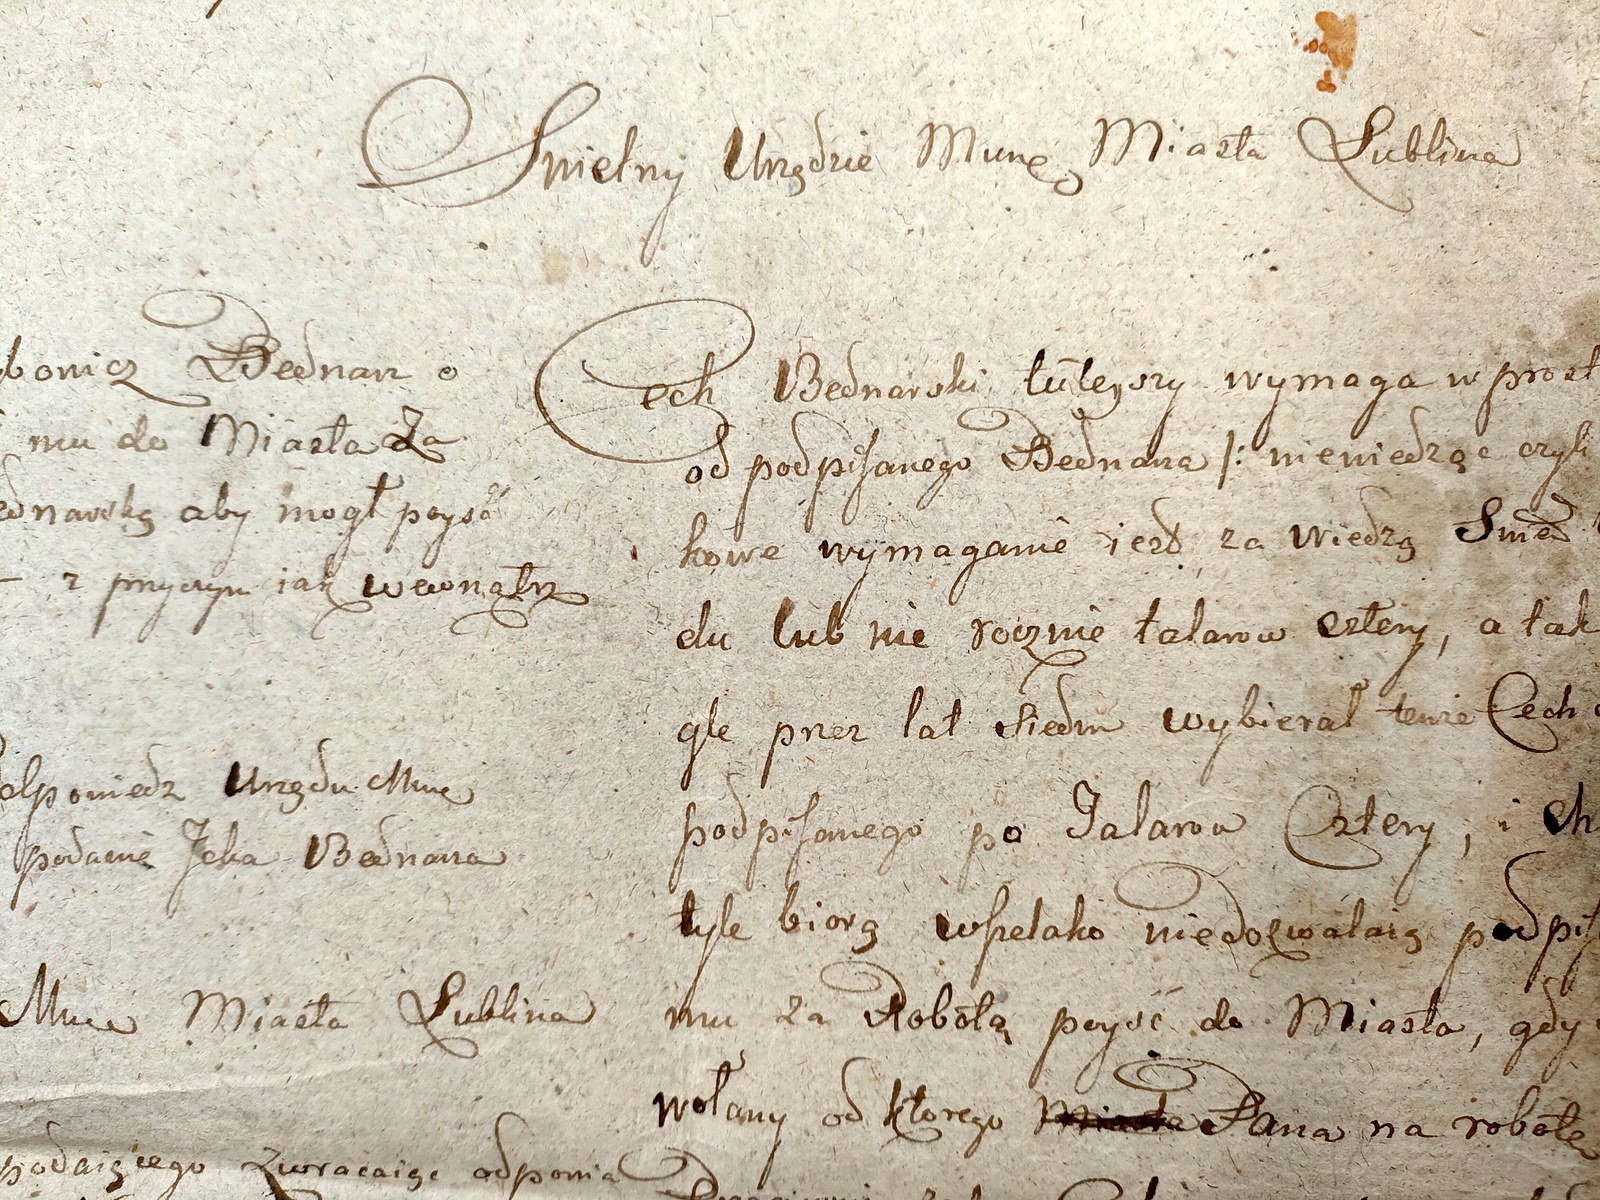 Swietny Urzędzie Munę Miasta Lublina
bonicz Bednarz o
mu do Miasta Za
ednarską aby mogł poyść
z przyczyn iak wewnątrz
odpowiedz Urzędu Munę
podanie Jcha Bednarza
Munę Miasta Lublina
podaiącego zwracaiąc odpowia
Cech Bednarski tuteyszy wymaga w prost
od podpisanego Bednarza /: niewiedząc czyli
kowe wymaganie iest za wiedzą Swiet
du lub nie rocznie talarow cztery, a tak
gle przez lat siedm wybierał tenże Cech
podpisanego po Talarow Cztery, i ch
tyle biorą wszelako niedozwalaią podpis
mu za Robotą poyść do Miasta, gdy
wołany od ktorego Miasta Pana na robotę